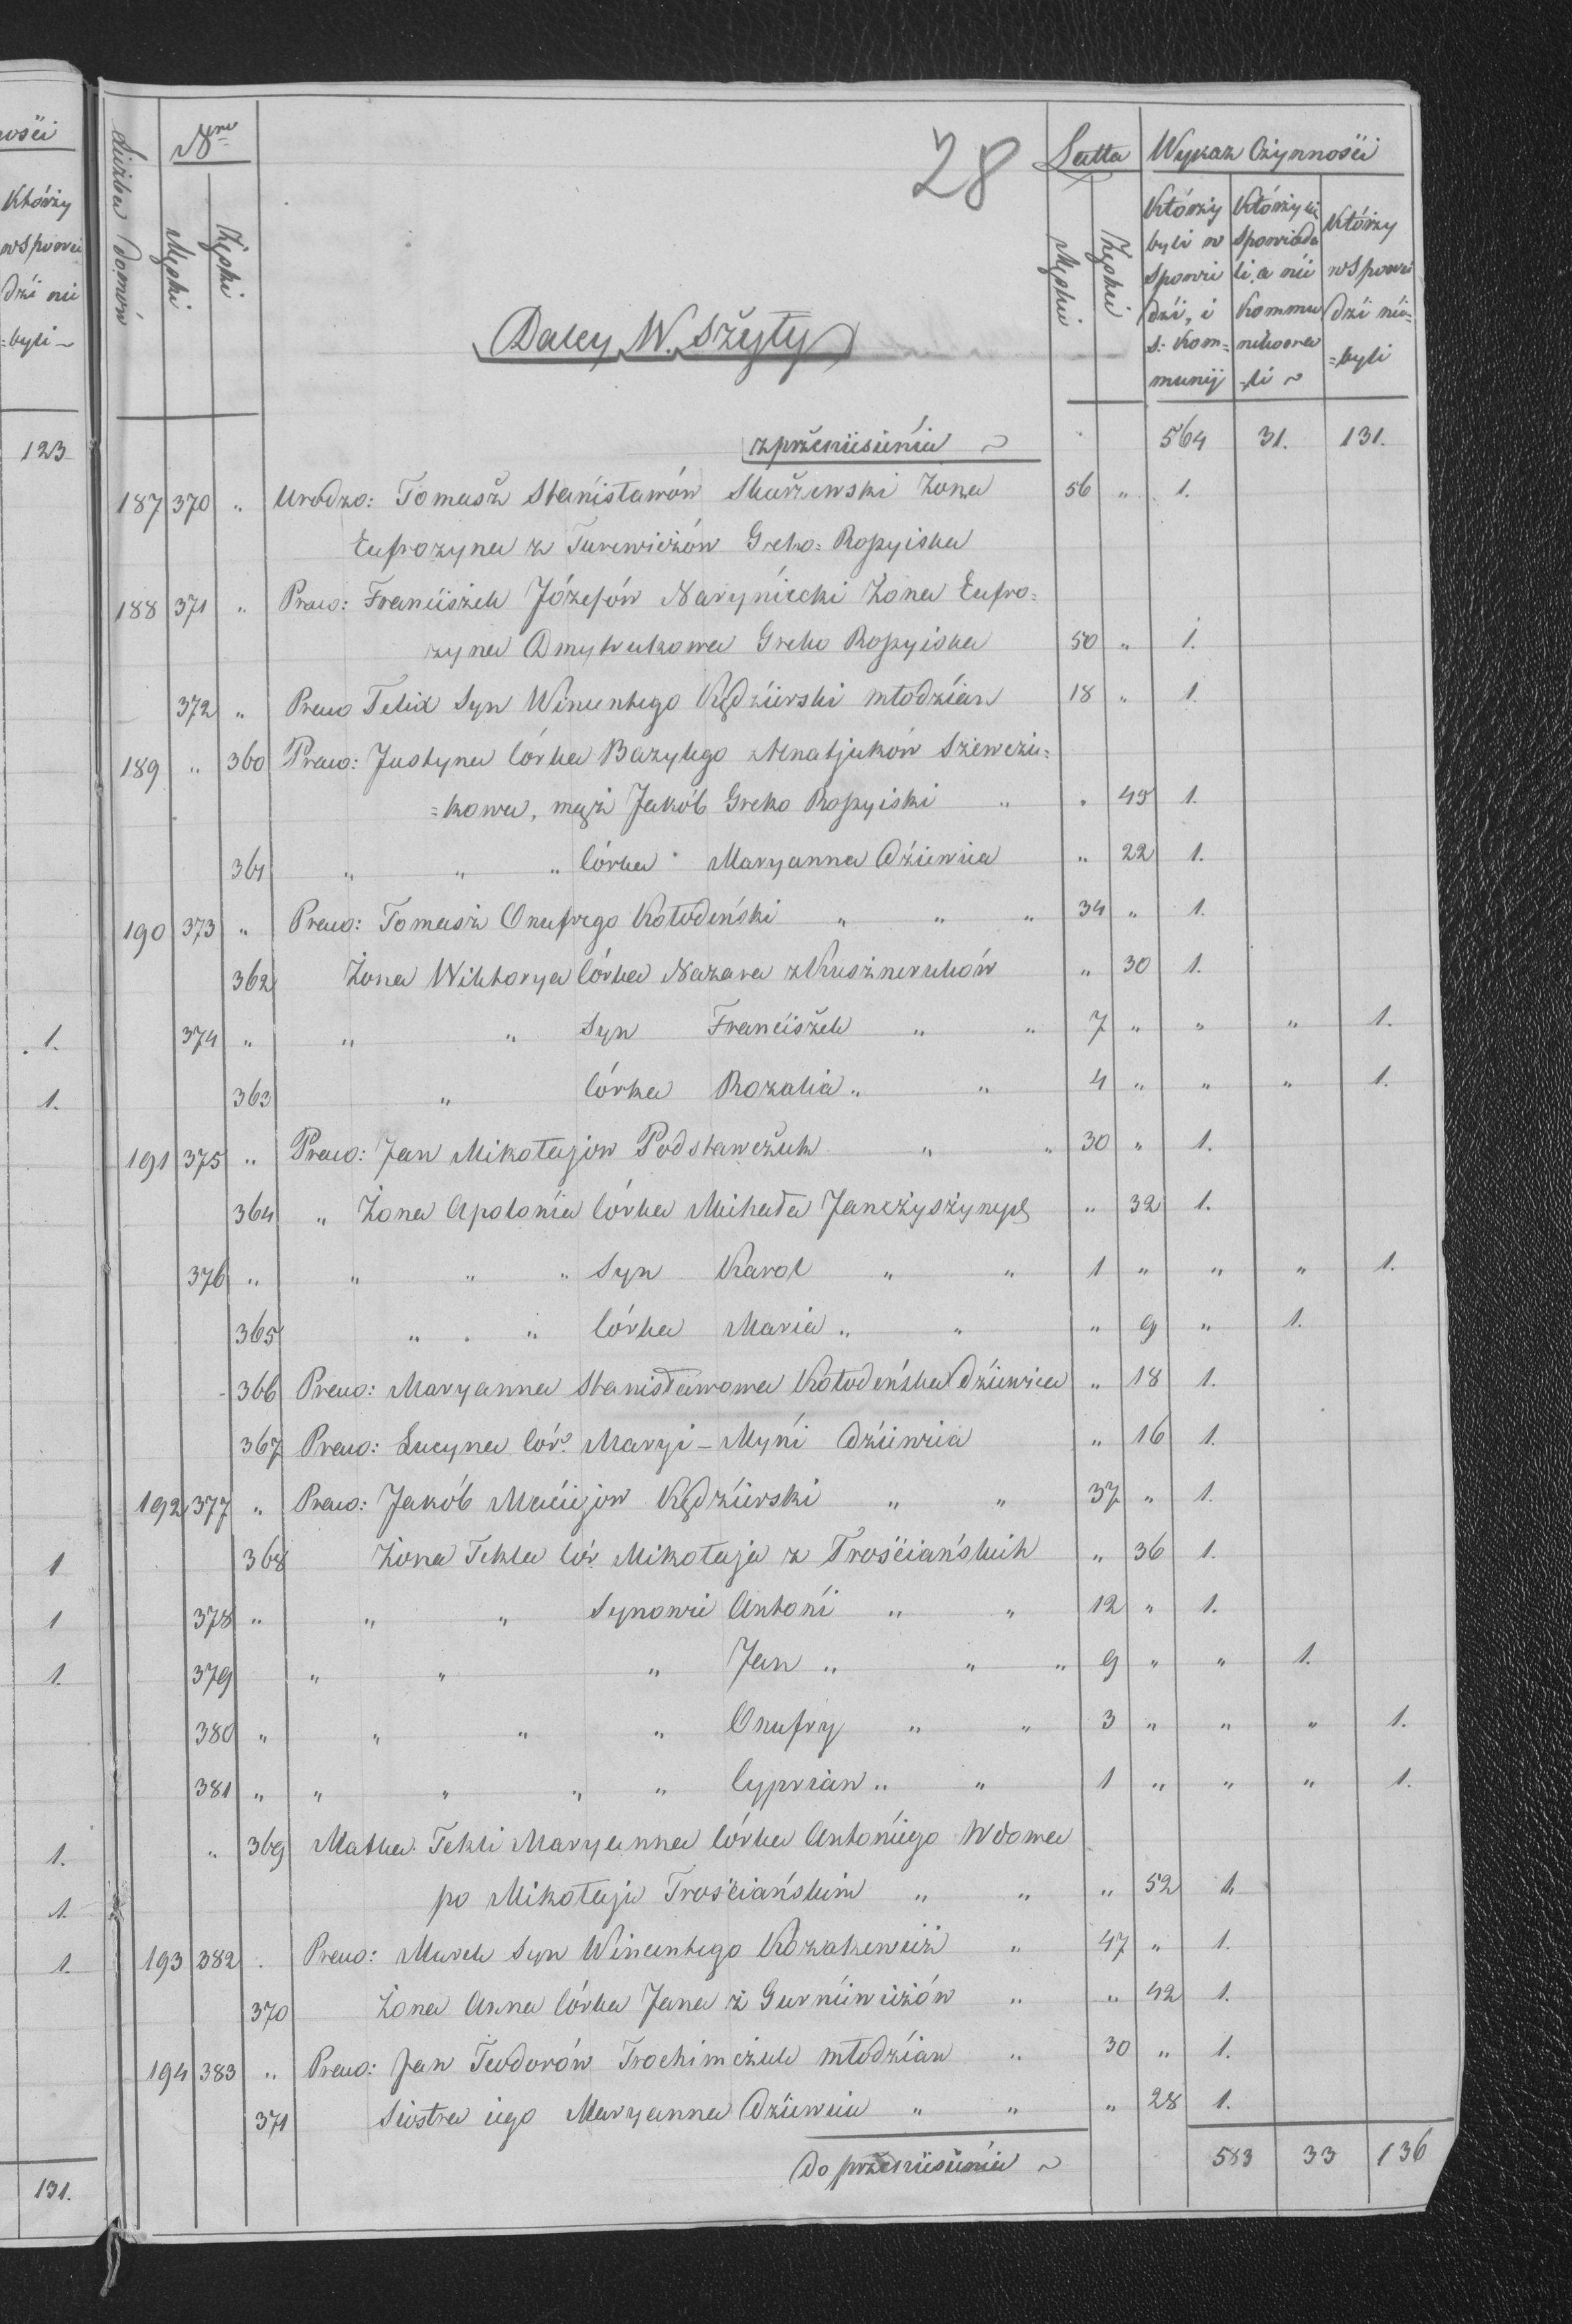 ności
Którzy
w Spowie
dzi nie
=byli ~
123
.1.
1.
1
1
1.
1.
1.
1.
131.
28
Liczba domów
Nra
Męski
Żęski
Latta
Męskie
Żęskie
Wykaz Czynnosći
Którzy byli w Spowie dzi, i s: Kom= munij
Którzy się spowiada li, a nie Kommu nikowa =li ~
Którzy w Spowie dzi nie= =byli
Daley W. Szyty
z przeniesienia ~ 564 31. 131.
187 370 " Urodzo: Tomasz Stanisławów Skarzewski Żona 56 " 1.
Eufrozyna z Turewiczów Greko= Rossyiska
188 371 " Praco: Franciszek Józefów Naryniecki Żona Eufro=
zyna Dmytrukowa Greko Rossyiska 50 " 1.
372 " Praco Felix Syn Wincentego Kędzierski młodzian 18 " 1.
189 " 360 Praco: Justyna Córka Bazylego z Hnatjuków Szewczu=
=kowa, mąż Jakób Greko Rossyiski " " 45 1.
361 " " " Córka Maryanna Dziewica " 22 1.
190 373 " Praco: Tomasz Onufrego Kołodeński " " " 34 " 1.
362 Żona Wiktorya Córka Nazara z Kusznieruków " 30 1.
374 " " " Syn Franciszek " " 7 " " " 1.
363 " Córka Rozalia " " 4 " " " 1.
191 375 " Praco: Jan Mikołajow Podstawczuk " " 30 " 1.
364 " Żona Apolonia Córka Michała Janczyszyny " 32 1.
376 " " " " Syn Karol " " 1 " " " 1.
365 " . " Córka Maria " " " 9 " 1.
366 Praco: Maryanna Stanisławowa Kołodeńska Dziewica " 18 1.
367 Praco: Lucyna Cór: Maryi - Myni Dziewica " 16 1.
192 377 " Praco: Jakób Maciejow Kędzierski " " 37 " 1.
368 Żona Tekla Cór Mikołaja z Trościańskich " 36 1.
378 " " " Synowie Antoni " " 12 " 1.
379 " " " Jan " " " 9 " " 1.
380 " " " " Onufry " " 3 " " " 1.
381 " " " " " Cyprian " " 1 " " " 1.
" 369 Matka Tekli Maryanna Córka Antoniego Wdowa
po Mikołaju Trościańskim " " " 52 1.
193 382 . Praco: Marek Syn Wincentego Kozakewicz " 47 " 1.
370 Żona Anna Córka Jana z Gurniewiczów " " 42 1.
194 383 " Praco: Jan Teodorów Trochimczuk młodzian " 30 " 1.
371 Siostra iego Maryanna Dziewica " " " 28 1.
do przeniesienia ~ 583 33 136